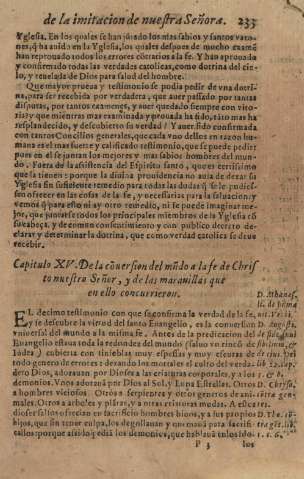 de la imitacion de nuestra Señora. 233
Yglesia. En los quales se han jũtado los mas sabios y santos varo-
nes, q̃ ha auido en la Yglesia, los quales despues de mucho examẽ
han reprouado todos los errores cõtrarios a la fe. Y han aprouado
y confirmado todas las verdades catolicas, como dotrina del cie-
lo, y reuelada de Dios para salud del hombre.
Que mayor prueua y testimonio se podia pedir de vna dotri-
na, para ser recebida por verdadera, que auer passado por tantas
disputas, por tantos examenes, y auer quedado siempre con vito-
ria? y que mientras mas examinada y prouada ha sido, tãto mas ha
resplandecido, y descubierto su verdad? Y auer sido confirmada
con tantos Concilios generales, que cada vno dellos en razon hu-
mana es el mas fuerte y calificado testimonio, que se puede pedir
pues en el se juntan los mejores y mas sabios hombres del mun-
do. Fuera de la assistencia del Espiritu santo, que es certissimo
que la tienen: porque la diuina prouidencia no auia de dexar su
Yglesia sin suficiente remedio para todas las dudas q̃ se le pudies-
sen ofrecer en las cosas de la fe, y necessarias para la saluacion: y
vemos q̃ para esto ni ay otro remedio, ni se puede imaginar me-
jor, que juntarse todos los principales miembros de la Yglesia cõ
su cabeça, y de comun consentimiento y con publico decreto de-
clarar y determinar la dotrina, que como verdad catolica se deue
recebir.
Capitulo XV. De la cõuersion del mũdo a la fe de Chris
to nuestro Señor, y de las marauillas que
en ello concurrieron.
D. Athanas.
EL decimo testimonio con que se confirma la verdad de la fe,
y se descubre la virtud del santo Euangelio, es la conuersion
D. Augusti.
vniuersal del mundo a la misma fe. Antes de la predicacion del
Euangelio estaua toda la redondez del mundo (saluo vn rincõ de
Iudea) cubierta con tinieblas muy espessas y muy escuras de
todo genero de errores: dexando los mortales el culto del verda-
dero Dios, adorauan por Dioses a las criaturas corporales, y a los
demonios. Vnos adorauã por Dios al Sol, y Luna Estrellas. Otros
D. Chryso.
a hombres viciosos. Otros a serpientes y otros generos de ani-
males: Otros a arboles y plãtas, y a otras criaturas mudas. A estos
dioses falsos ofrecian en sacrificio hombres biuos, y a sus propios
hijos, que sin tener culpa, los degollauan y quemauã para sacrifi-
carlos: porque assi lo pediã los demonios, que hablauã en los ido-
P 3 los